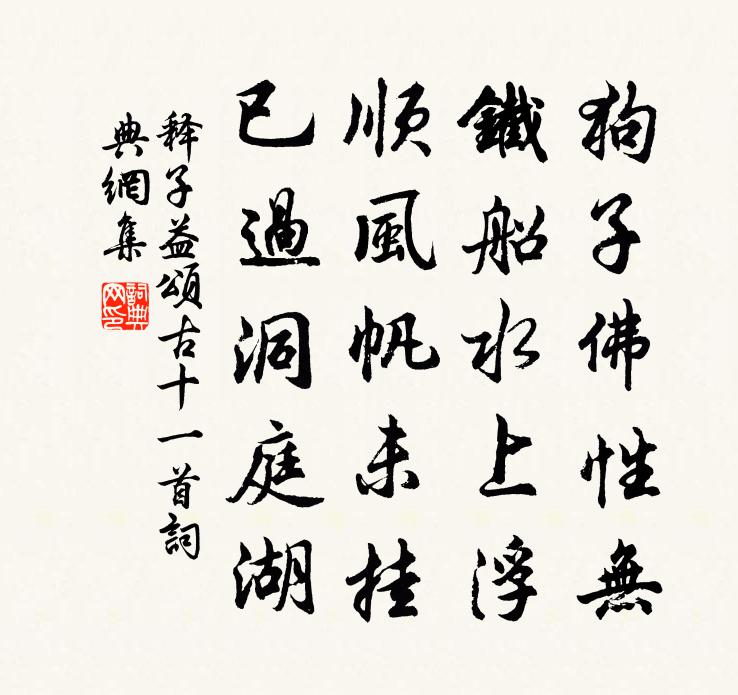 狗子佛性無
鐵船水上浮
順風帆未挂
已過洞庭湖
释子益頌古十一首詞
典網集
詞典網印